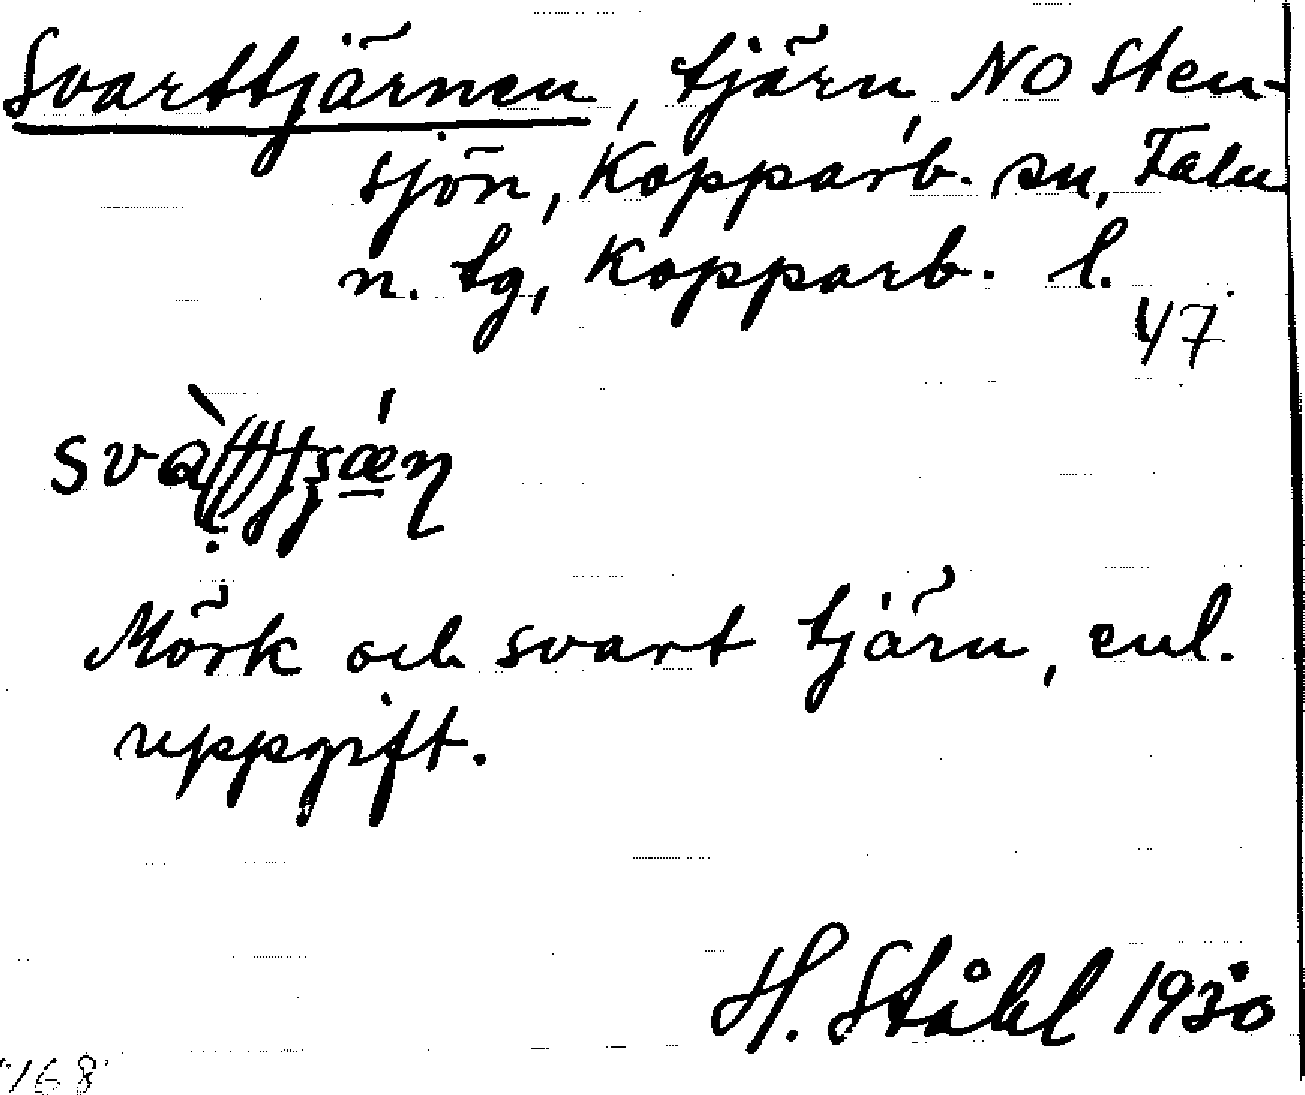 Svarttjärnen, tjärn NO Sten-
sjön, Kopparb. sn, Falu
n. tg, Kopparb. l.
47
Mörk och svart tjärn, enl.
uppgift.
H. Ståhl 1930
168